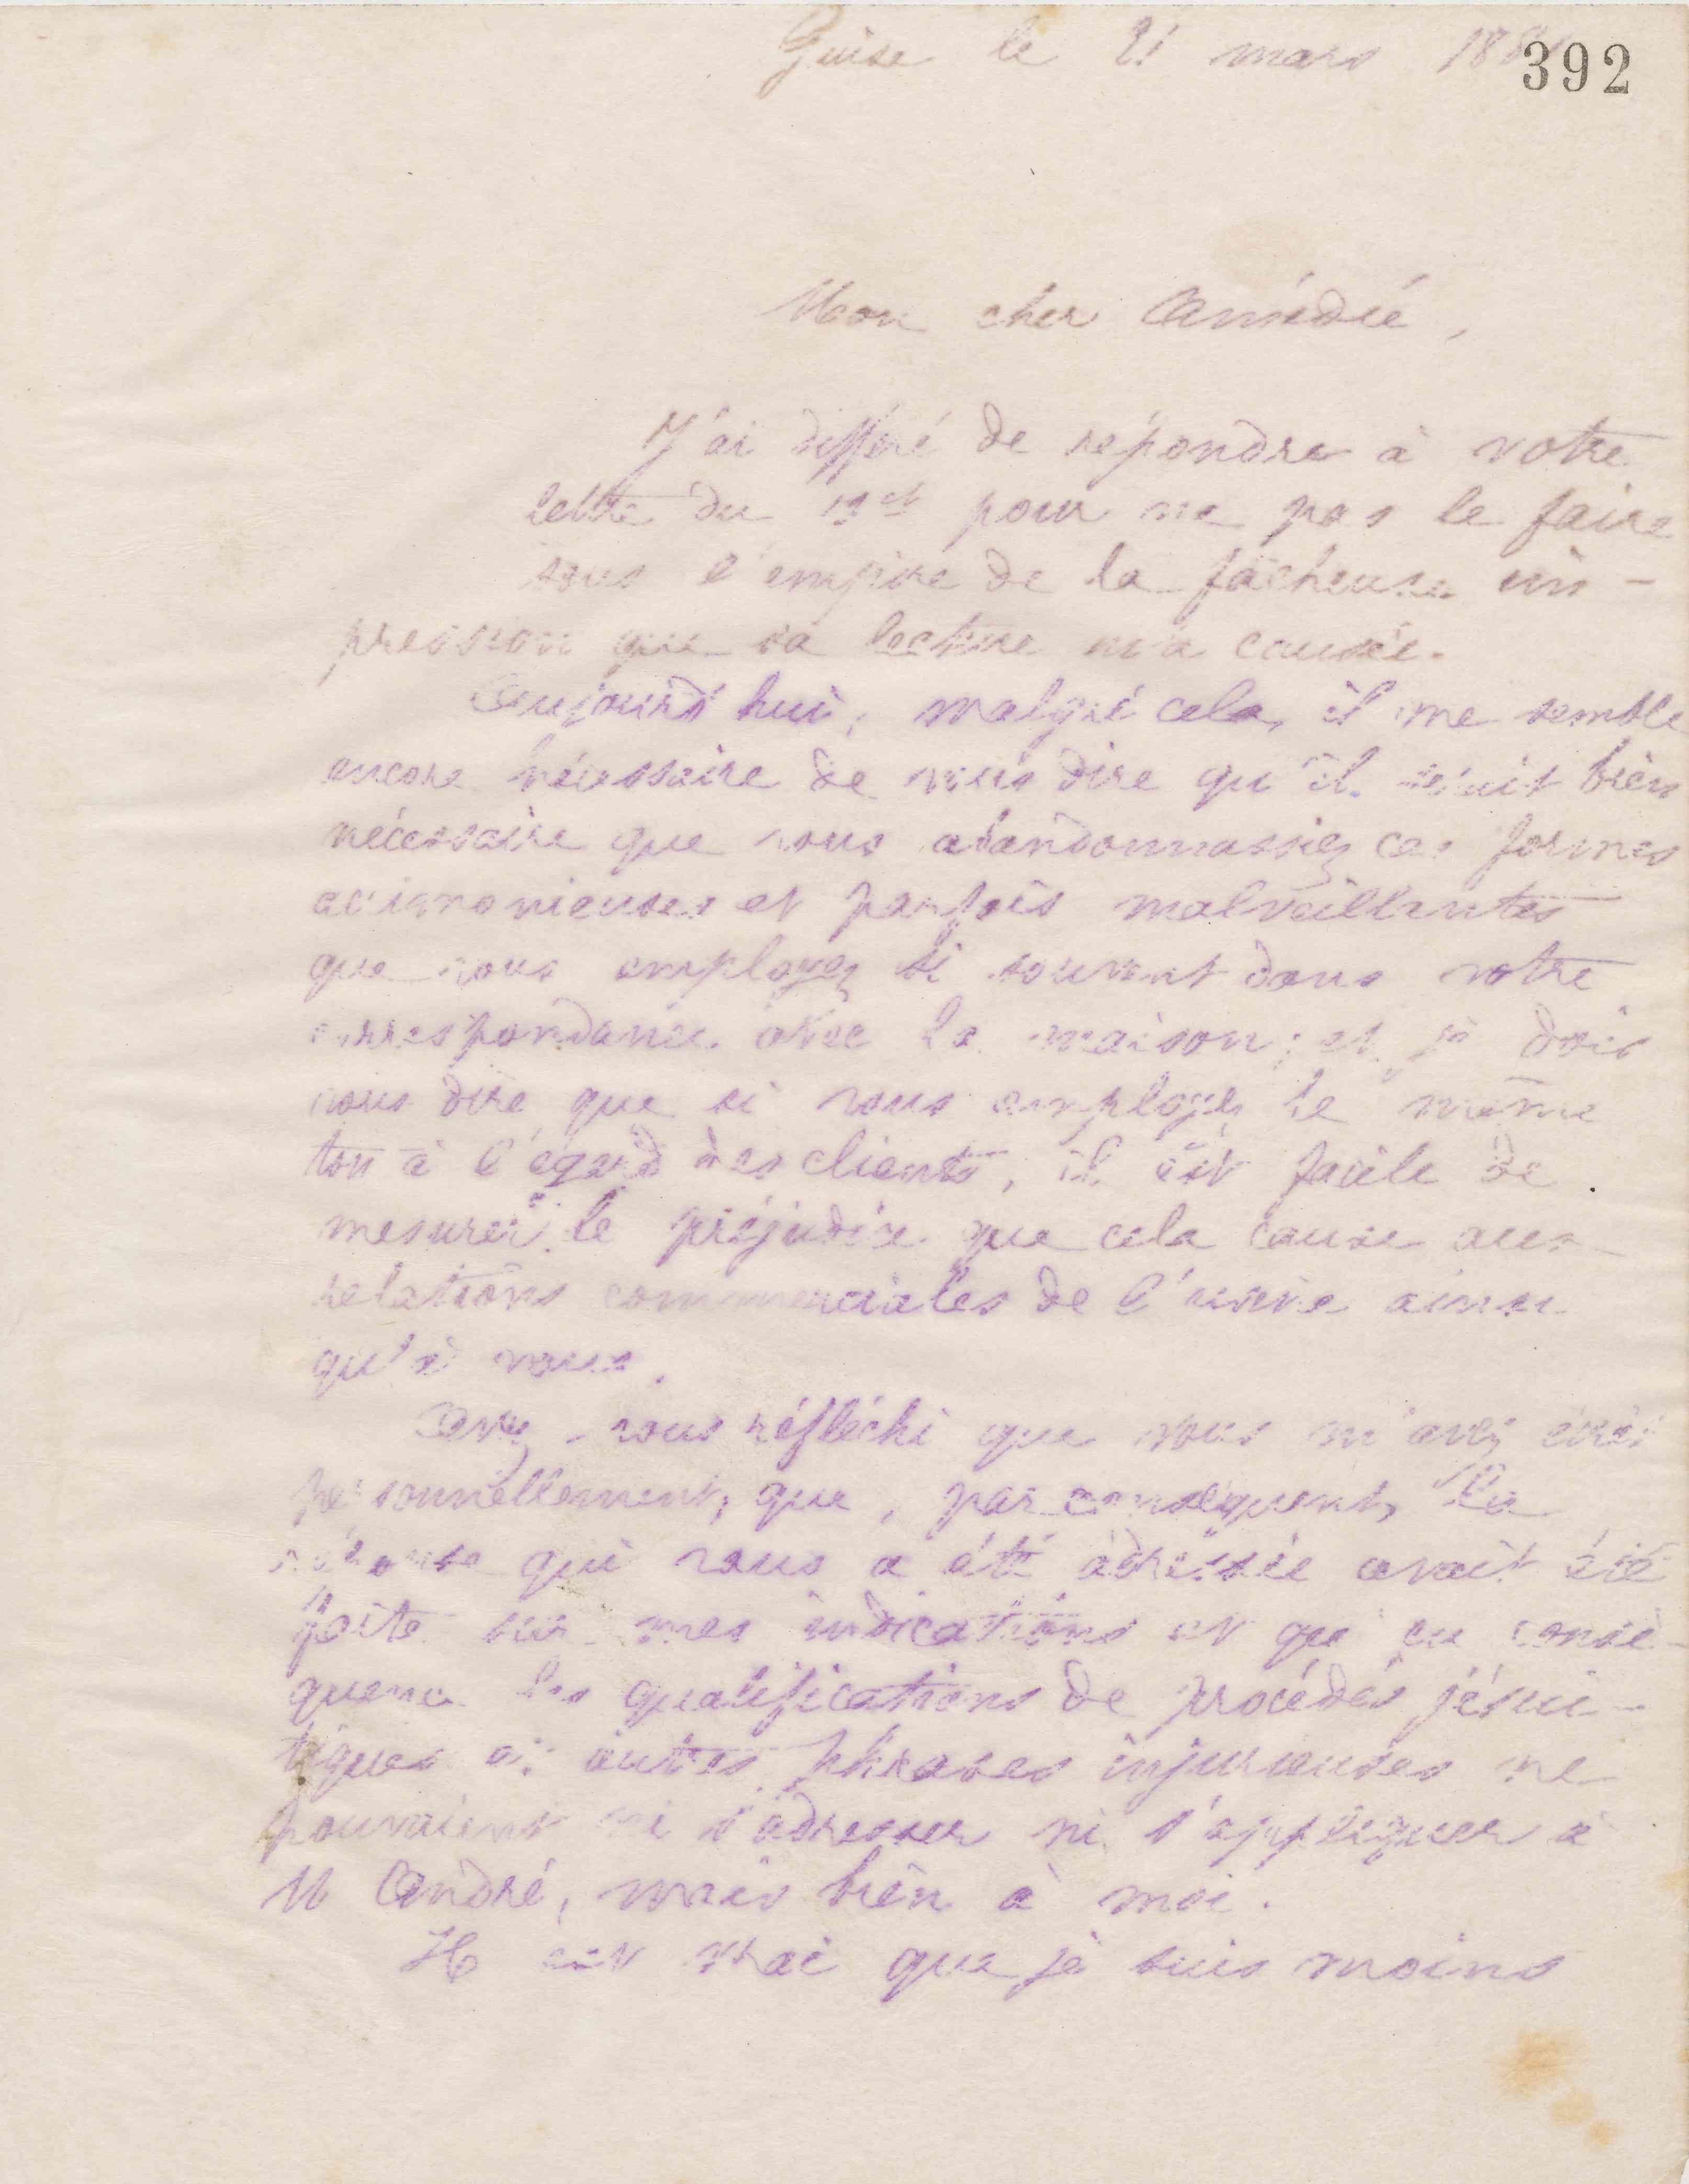 Guise le 21 mars 188
392
Mon cher Amédée,
J'ai différé de répondre à votre
lettre du pour ne pas le faire
sous l'empire de la fâcheuse im-
pression que sa lecture m'a causée.
Aujourd'hui, malgré cela, il me semble
encore nécessaire de vous dire qu'il serait bien
nécessaire que vous abandonnassiez ces formes
acrimonieuses et parfois malveillantes
que vous employez si souvent dans votre
correspondance avec la maison; et je dois
vous dire que si vous employez le même
ton à l'égard des clients, il est facile de
mesurer le préjudice que cela cause aux
relations commerciales de l'usine ainsi
qu'à vous.
Avez-vous réfléchi que vous m'avez écrit
personnellement, que, par conséquent, la
réponse qui vous a été adressée avait été
faite sur mes indications et qu'en consé-
quence les qualifications de procédés jésui-
tiques et autres phrases injurieuses ne
pouvaient ni s'adresser ni s'appliquer à
M André, mais bien à moi.
Il est vrai que je suis moins